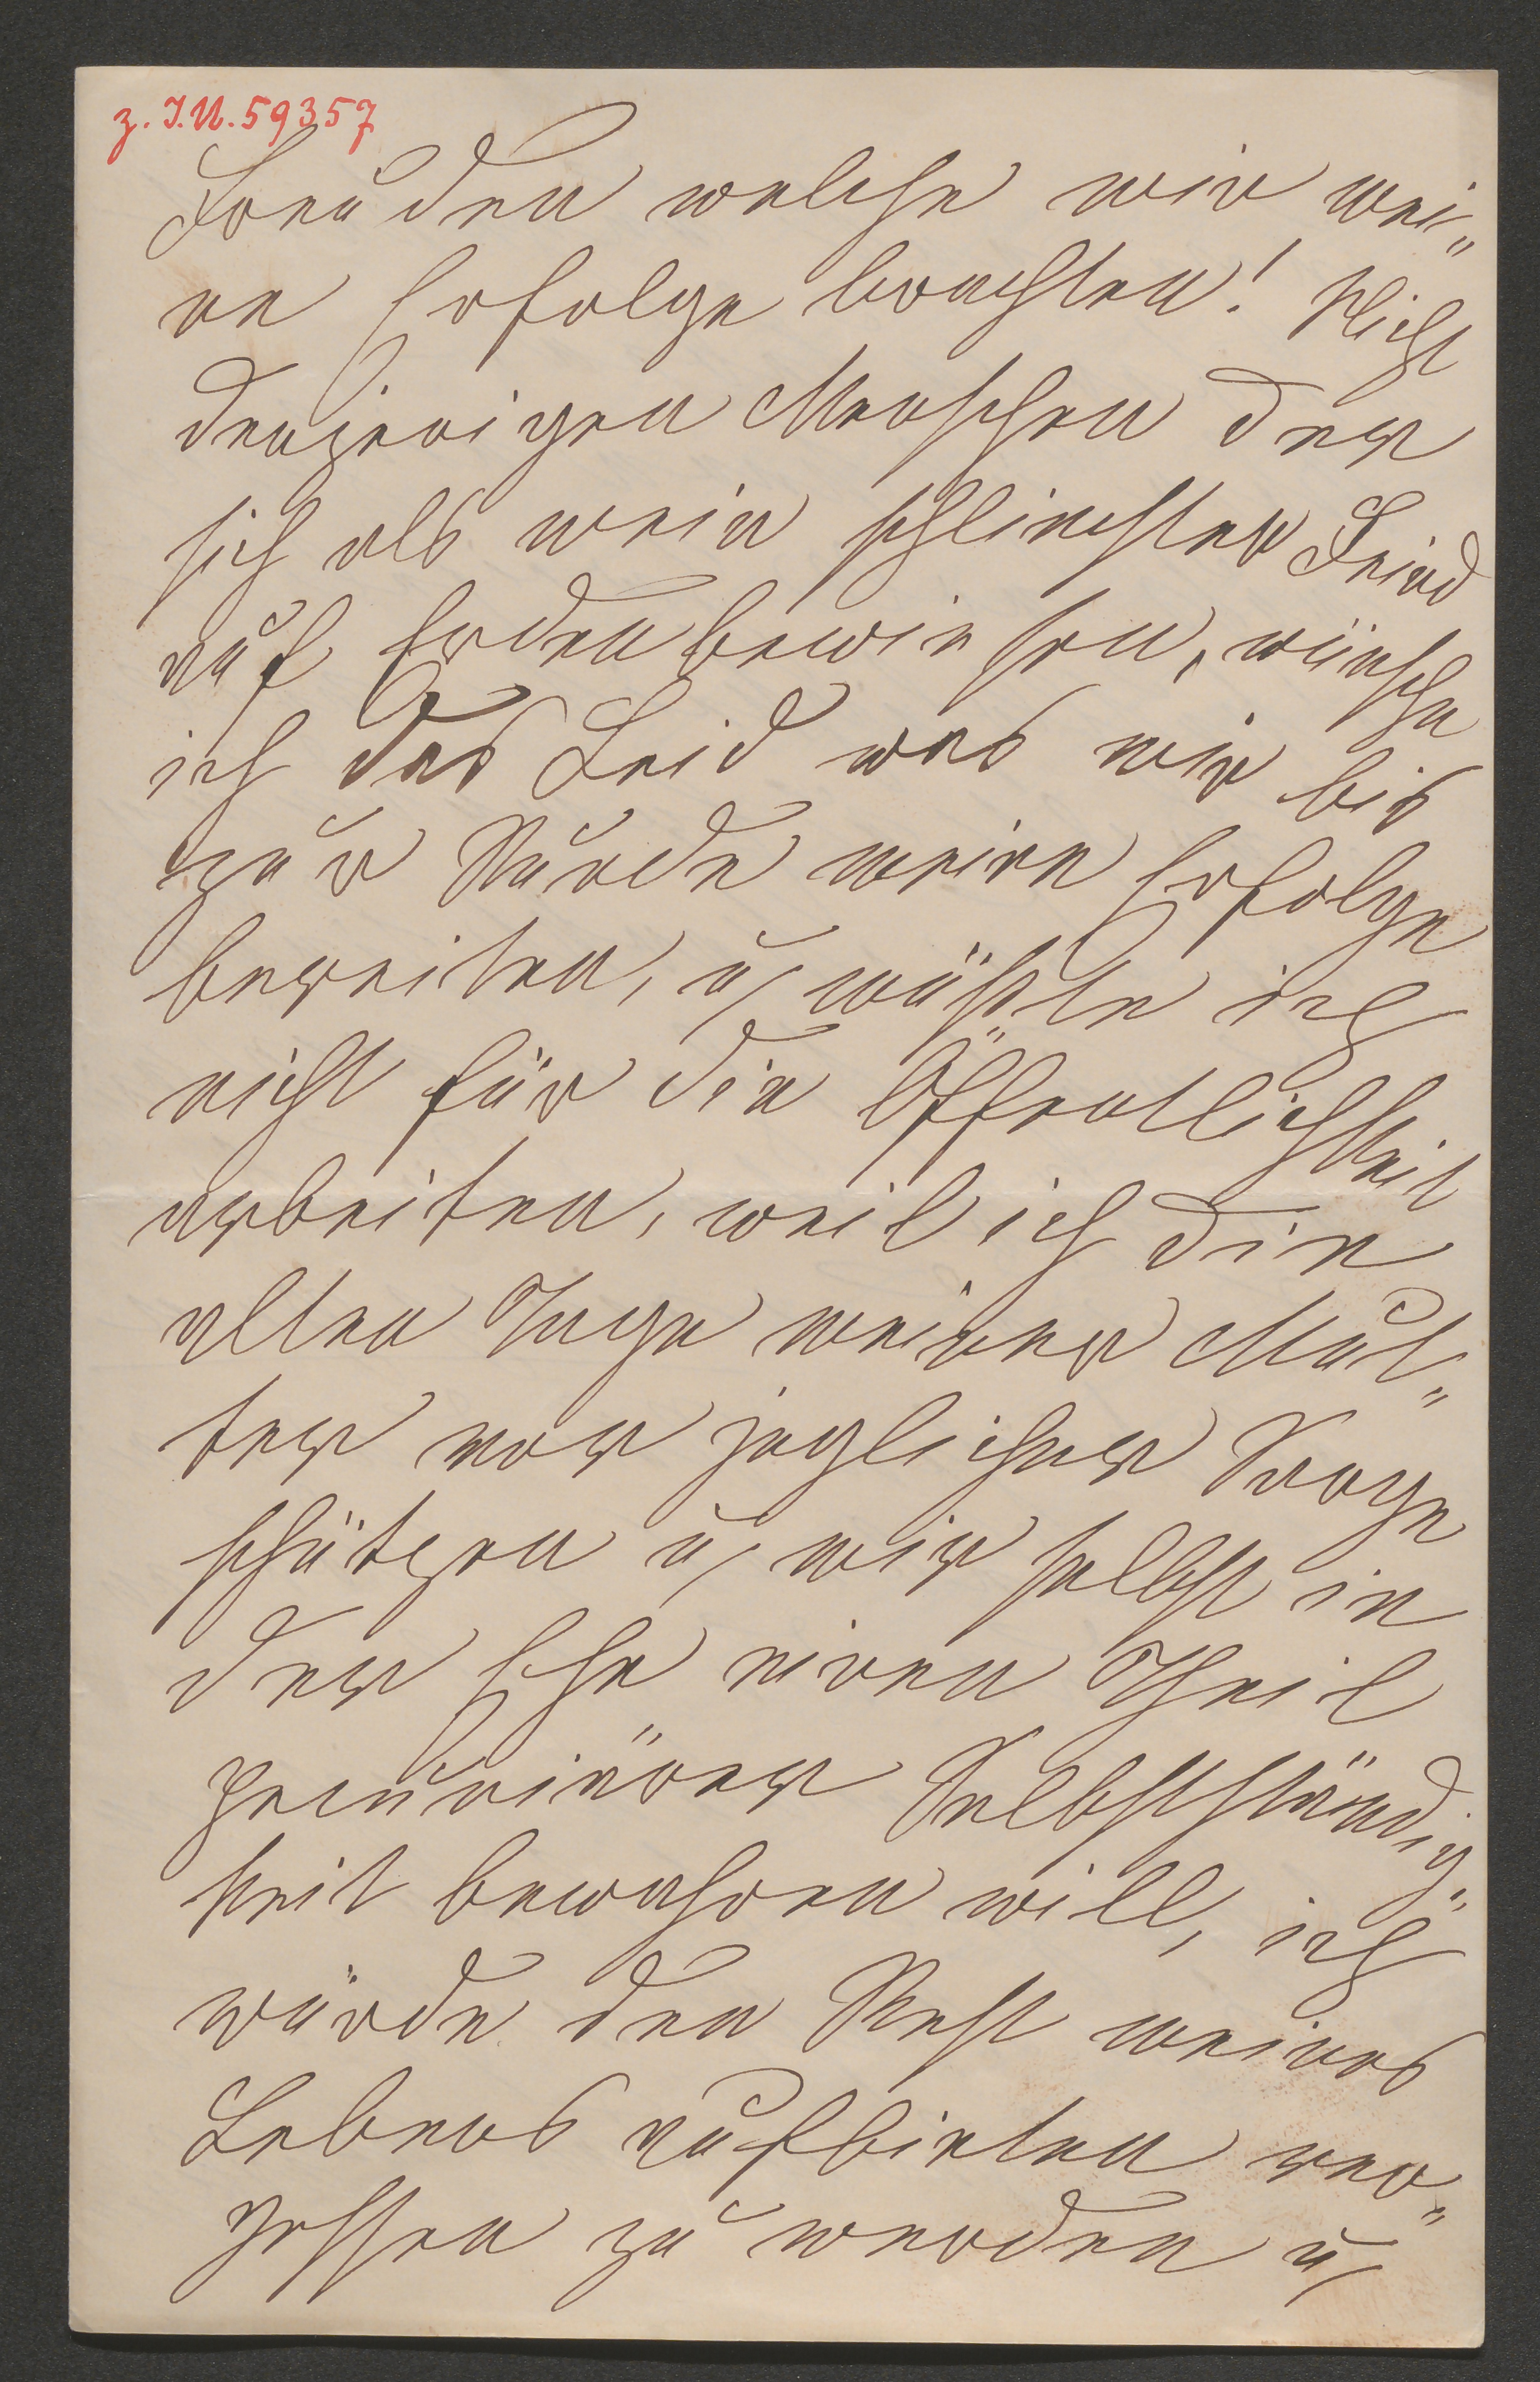 z. I.N. 59357
Freuden welche mir mei„
ne Erfolge brachten! Nicht
denjenigen Menschen der
sich als mein schlimmster Feind
auf Erden bewiesen, wünsche
ich das Leid was mir bis
zur Stunde meine Erfolge
bereiten, u, müßte ich
nicht für die Öffentlichkeit
arbeiten, weil ich die
alten Tage meiner Mut„
ter vor jeglicher Sorge
schützen u, mir selbst in
der Ehe einen Theil
pecuniärer Selbstständig„
keit bewahren will, ich
würde den Rest meines
Lebens aufbieten ver„
gessen zu werden u,